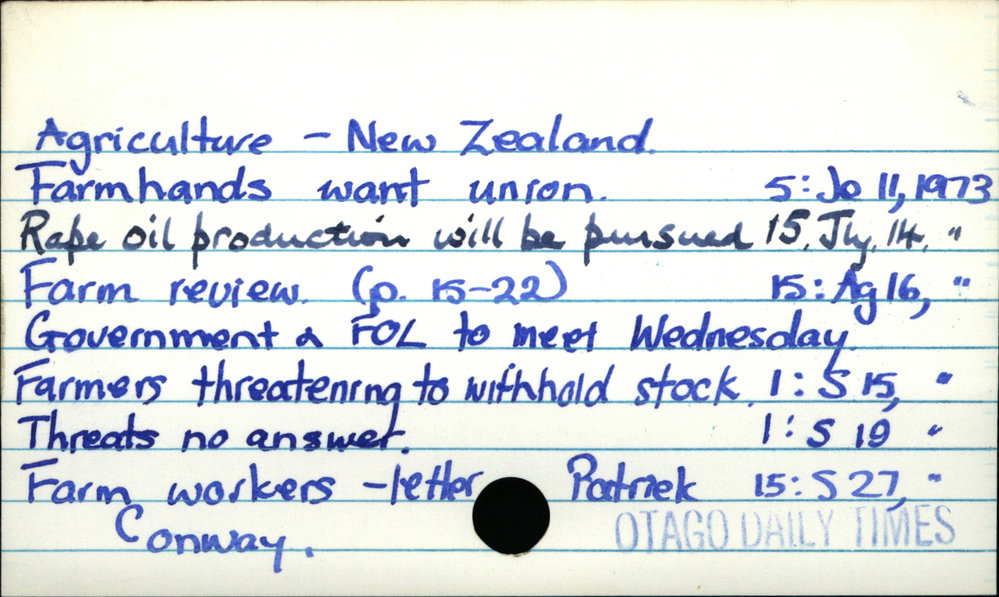 Agriculture - New Zealand.
Farmhands want union. 5: Je 11, 1973
Rape oil production will be pursued 15. Jly. 14, "
Farm review. (p. 15-22) 15: Ag 16, "
Government & FOL to meet Wednesday.
Farmers threatening to withhold stock. 1: S 15, "
Threats no answer. 1: S 19 "
Farm workers - letter Patrick 15: S 27, "
Conway.
OTAGO DAILY TIMES